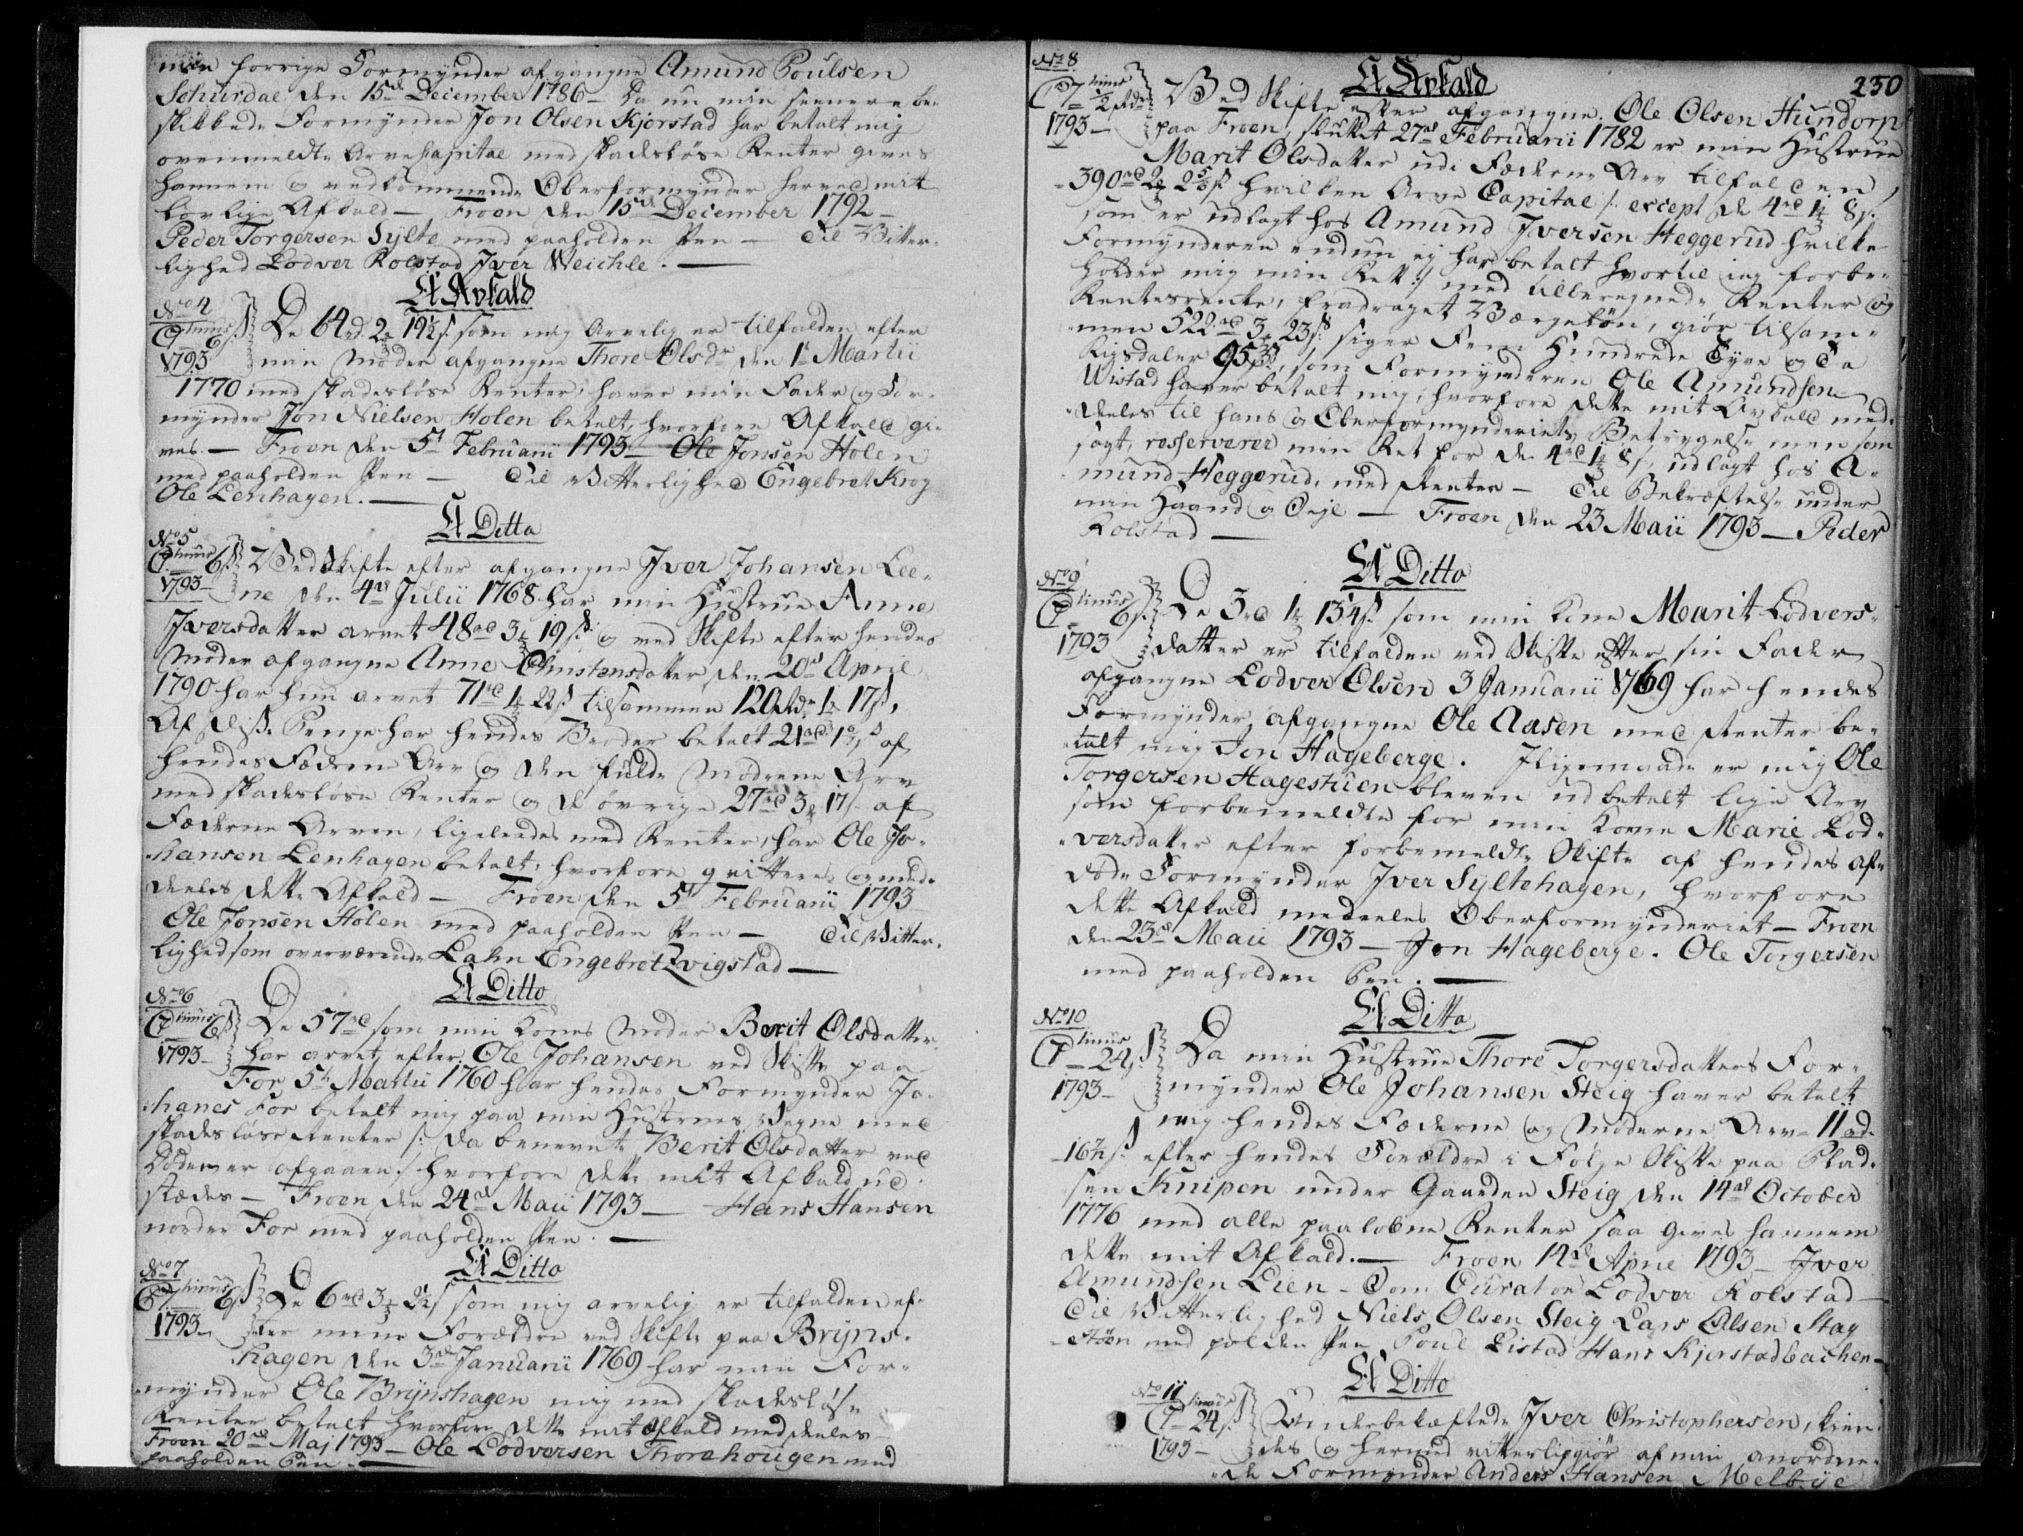 min forrige Formynder afgangne Amund Poulsen
Schurdal den 15de December 1786 – Da nu min senere be-
skikkede Formynder Jon Olsen Kjorstad har betalt mig
ovenmeldte Arve Capital med skadesløse Renter gives
hannem og vedkommende Oberformynder herved mit
lovlige Afkald – Froen den 15de December 1792 –
Peder Torgersen Sylte med paaholden Pen – Til Vitter-
lighed Lodver Kolstad Iver Weichle. –
Et Avkald
No 4
6 s
1793
De 64 rd 2 19½ s. som mig Arvelig er tilfalden efter
min Moder afgangne Thore Olsdr den 1t Martii
1770 med skadesløse Renter, haver min Fader og For-
mynder Jon Nielsen Holen betalt, hvorfore Afkald gi-
ves. – Froen den 5t Februarii 1793 – Ole Jonsen Holen
med paaholden Pen – Til Vitterlighed Engebret Krog
Ole Lenhagen. –
Et Ditto
No 5
6 s
1793 –
Ved Skifte efter afgangne Iver Johansen Lee-
ne den 4de Julii 1768 har min Hustrue Anne
Iversdatter arvet 48 rd 3 19 s. og ved Skifte efter hendes
Moder afgangne Anne Christensdatter den 20de April
1790 har hun arvet 71 rd 1 22 s tilsammen 120 Rdr 1 17 s,
Af disse Penge har hendes Broder betalt 21 rd af
hendes Fæderne Arv og den fulde Møderne Arv
med skadesløse Renter og de øvrige 27 rd 3 17 s. af
Fæderne Arven, ligeledes med Renter, har Ole Jo-
hansen Lenhagen betalt, hvorfore qvitteres og med-
deeles dette Afkald – Froen den 5t Februarii 1793
Ole Jonsen Holen med paaholden Pen – Til Vitter-
lighed som overværende Lahn Engebret Qvigstad –
Et Ditto
No 6
6 s
1793 –
De 57 rd som min Kones Moder Berit Olsdatter
har arvet efter Ole Johansen ved Skifte paa
For 5te Martii 1760 har hendes Formynder Jo-
hanes For betalt mig paa min Hustrues Vegne med
skadesløse Renter /: da benevnte Berit Olsdatter ved
Døden er afgaaen :/ hvorfore dette mit Afkald ud-
stædes – Froen den 24de Maii 1793 – Hans Hansen
nordre For med paaholden Pen. –
Et Ditto
No 7
6 s
1793 –
De 6 rd 3 2½ s som mig arvelig er tilfalden ef-
ter mine Forældre ved Skifte paa Bryns-
hagen den 3de Januarii 1769 har min For-
mynder Ole Brynshagen mig med skadesløse
Renter betalt hvorfor dette mit Afkald meddeeles –
Froen 20de Maj 1793 – Ole Lodversen Thorehougen med
paaholden Pen. –
230
No 8
1793 –
Et Avkald
Ved Skifte efter afgangne Ole Olsen Hundorp
paa Froen, sluttet 27de Februarii 1782 er min Hustrue
Marit Olsdatter udi Fæderne Arv tilfalden
390 rd 2 2 5/8 s hvilken Arve Capital /: except de 4 rd 1 8 s.
som er udlagt hos Amund Iversen Heggerud hvilke
Formynderen endnu ej har betalt hvortil jeg forbe-
holder mig min Ret :/ med tilberegnede Renter og
Rentesrente, fradraget Værgeløn, giør tilsam-
men 522 rd 3 23 s: siger Fem Hundrede Tyve og To
Rigsdaler 95 s, som Formynderen Ole Amundsen
Wistad haver betalt mig, hvorfore dette mit Avkald med-
deeles til hans og Oberformynderiets Betryggelse men som
sagt, resserverer min Ret for de 4 rd 1 8 s. udlagt hos A-
mund Heggerud, med Renter – Til Bekræftelse under
min Haand og Seigl – Froen den 23 Maii 1793 – Peder
Kolstad –
Et Ditto
No 9
6 s.
1793
De 3 rd 1 13¼ s som min Kone Marit Lodvers-
datter er tilfalden ved Skifte efter sin Fader
afgangne Lodver Olsen 3 Januarii 1769 har hendes
Formynder, afgangne Ole Aasen med Renter be-
talt mig Jon Hageberge. Iligemaade er mig Ole
Torgersen Hagestuen bleven udbetalt lige Arv
som forbemeldte for min Kone Marie Lod-
versdatter efter forbemeldte Skifte af hendes af-
døde Formynder Iver Syltehagen, hvorfore
dette Afkald meddeeles Oberformynderiet – Froen
den 23de Maii 1793 – Jon Hageberge. Ole Torgersen
med paaholden Pen. –
Et Ditto
No 10
24 s
1793 –
Da min Hustrue Thore Torgersdatters For-
mynder Ole Johansen Steig haver betalt
mig hendes Fæderne og Møderne Arv 11 rd.
16½ s. efter hendes Forældre i Følge Skifte paa Plad-
sen Knipen under Gaarden Steig den 14de October
1776 med alle paalobne Renter saa gives hannem
dette mit Afkald. – Froen 12de April 1793 – Iver
Amundsen Lien – Som Curator Lodver Kolstad –
Til Vitterlighed Niels Olsen Steig Lars Olsen Stag
støen med p. holden Pen Poul Listad Hans Kjorstadbachen –
Et Ditto
No 11
24 s
1793 –
Underbekæftede Iver Christophersen, kien-
des og hermed vitterligiør af min anordne-
de Formynder Anders Hansen Melbye